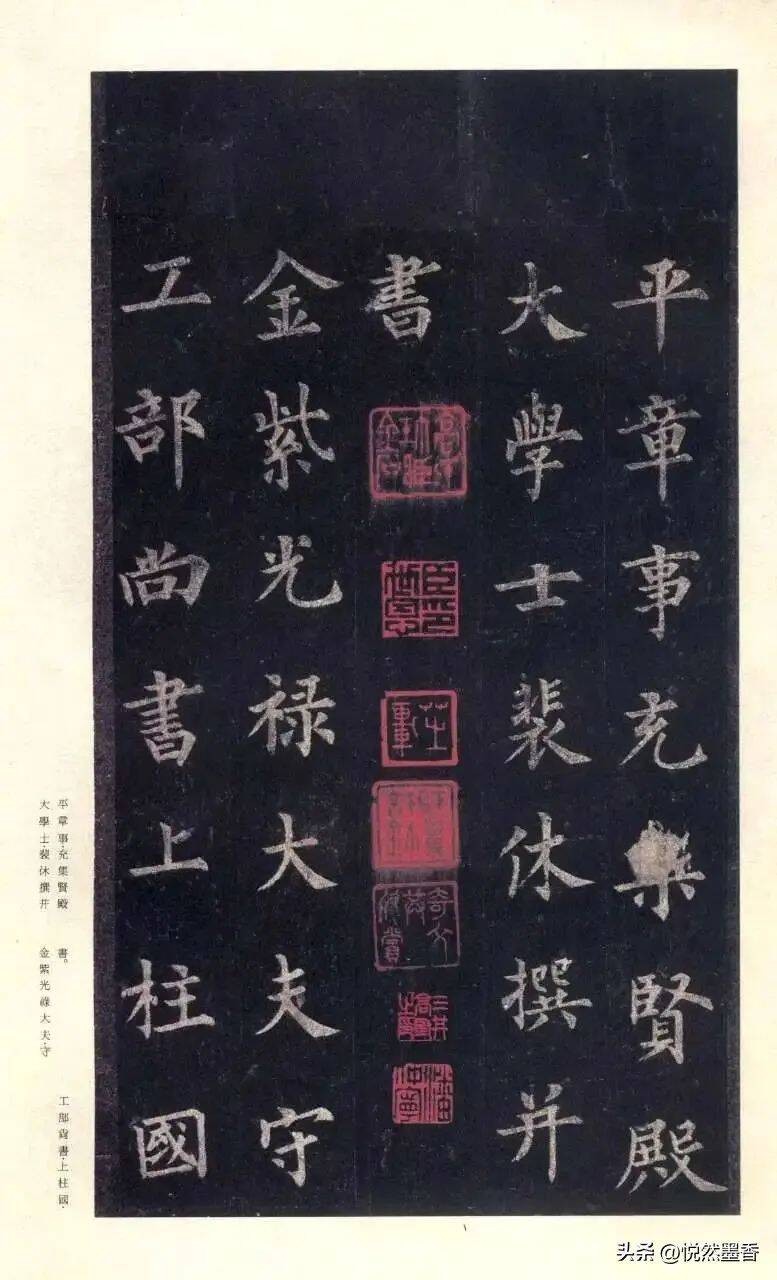 平章事充集賢殿
大學士裴休撰并
書
金紫光禄大夫守
工部尚書上柱國
平章事·充集賢殿
大學士·裴休撰并
書。
金紫光祿大夫·守
工部尙書·上柱國·
头条 @悦然墨香